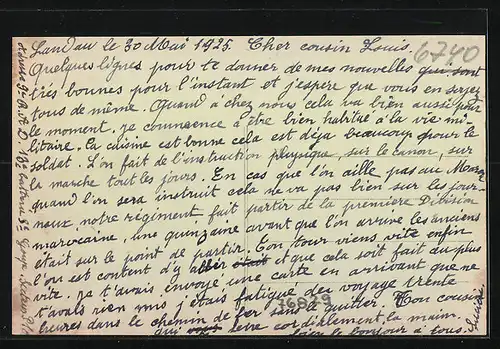 Landau le 30 Mai 1925. Cher cousin Louis.
6740
Quelques lignes pour te donner de mes nouvelles qui sont
très bonnes pour l'instant et j'espère que vous en serez
tous de même. Quand à chez nous cela va bien aussi pour
le moment, je commence à être bien habitué à la vie mi-
litaire. La cuisine est bonne cela est déja beaucoup pour le
soldat. L'on fait de l'instruction physique, sur le canon, sur
la marche tout les jours. En cas que l'on aille pas au Maroc
quand l'on sera instruit cela ne va pas bien sur les jour-
naux, notre régiment fait partir de la première Division
marocaine, une quinzaine avant que l'on arrive les anciens
était sur le point de partir. Ton tour viens vite enfin
l'on est content d'y aller et que cela soit fait au plus
vite. Je t'avais envoyé une carte en arrivant que ne
t'avais rien mis j'étais fatigué des voyage trente
heures dans le chemin de fer sans le quitter. Ton cousin
qui te serre cordialement la main.
le bonjour à tous.
76829